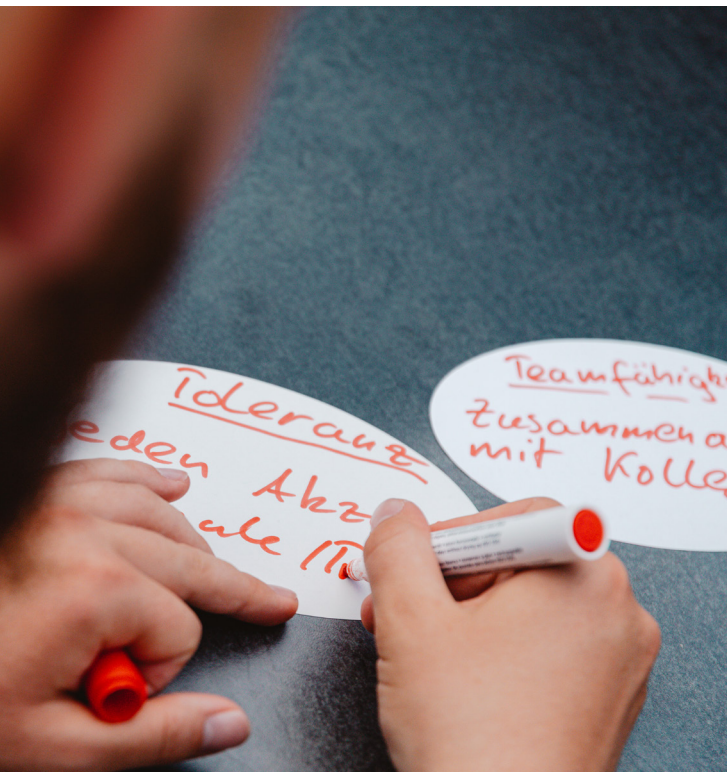 Toleranz
eden Akz
ale IT
Teamfähigk
Zusammena
mit Kolle